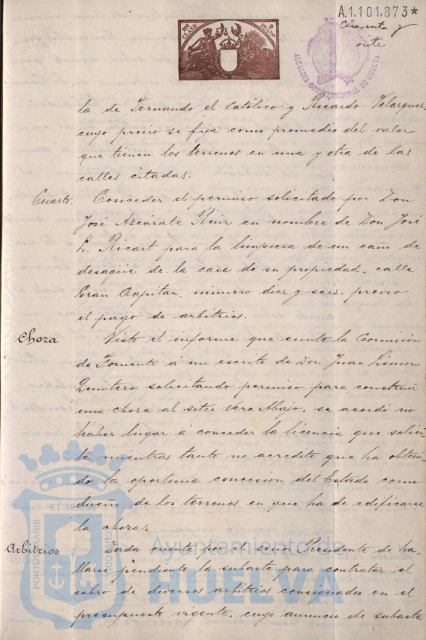 A.1.101.873*
Cincuenta y
siete
ALCALDIA CONSTITUCIONAL DE HUELVA
la de Fernando el Católico y Ricardo Velazquez,
cuyo precio se fija como promedio del valor
que tienen los terrenos en una y otra de las
calles citadas.
Cuarto. Conceder el permiso solicitado por Don
José Azcárate Ruiz en nombre de Don José
L. Ricart para la limpieza de un caño de
desagüe de la casa de su propiedad, calle
Gran Capitan, número diez y seis, previo
el pago de arbitrios.
Choza Visto el informe que emite la Comision
de Fomento á un escrito de Don Juan Limon
Quintero solicitando permiso para construir
una choza al sitio Vera Abajo, se acordó no
haber lugar á conceder la licencia que solici-
ta mientras tanto no acredite que ha obteni-
do la oportuna concesion del Estado como
dueño de los terrenos en que ha de edificarse
la choza.
Arbitrios Dada cuenta por el señor Presidente de ha-
llarse pendiente la subasta para contratar el
cobro de diversos arbitrios consignados en el
presupuesto vigente, cuyo anuncio de subasta
Ayuntamiento de
HUELVA